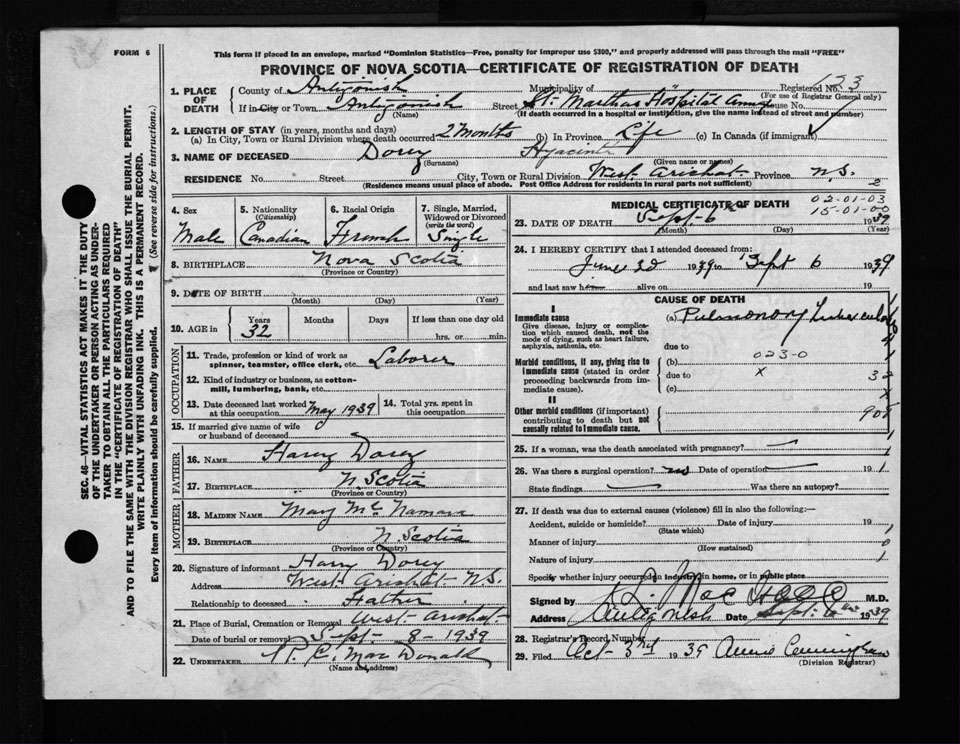 FORM 6
This form if placed in an envelope, marked "Dominion Statistics—Free, penalty for improper use $300," and properly addressed will pass through the mail "FREE"
PROVINCE OF NOVA SCOTIA—CERTIFICATE OF REGISTRATION OF DEATH
SEC. 46—VITAL STATISTICS ACT MAKES IT THE DUTY
OF THE UNDERTAKER OR PERSON ACTING AS UNDER-
TAKER TO OBTAIN ALL THE PARTICULARS REQUIRED
IN THE "CERTIFICATE OF REGISTRATION OF DEATH"
AND TO FILE THE SAME WITH THE DIVISION REGISTRAR WHO SHALL ISSUE THE BURIAL PERMIT.
WRITE PLAINLY WITH UNFADING INK. THIS IS A PERMANENT RECORD.
Every item of information should be carefully supplied. (See reverse side for instructions.)
1. PLACE OF DEATH County of Antigonish Municipality of " Registered No. 123
(For use of Registrar General only)
If in City or Town Antigonish Street St. Martha's Hospital Annex House No.
(Name) (If death occurred in a hospital or institution, give the name instead of street and number)
2. LENGTH OF STAY (in years, months and days)
(a) In City, Town or Rural Division where death occurred 2 months (b) In Province Life (c) In Canada (if immigrant)
3. NAME OF DECEASED Dorey Hyacinth
(Surname) (Given name or names)
RESIDENCE No. Street City, Town or Rural Division West Arichat Province N.S. 2
(Residence means usual place of abode. Post Office Address for residents in rural parts not sufficient)
4. Sex Male
5. Nationality (Citizenship) Canadian
6. Racial Origin French
7. Single, Married, Widowed or Divorced (write the word) Single
8. BIRTHPLACE Nova Scotia
(Province or Country)
9. DATE OF BIRTH
(Month) (Day) (Year)
10. AGE in Years 32 Months Days If less than one day old
hrs. or min.
OCCUPATION
11. Trade, profession or kind of work as spinner, teamster, office clerk, etc. Laborer
12. Kind of industry or business, as cotton-mill, lumbering, bank, etc.
13. Date deceased last worked at this occupation May 1939 14. Total yrs. spent in this occupation
15. If married give name of wife or husband of deceased
FATHER
16. NAME Harry Dorey
17. BIRTHPLACE N. Scotia
(Province or Country)
MOTHER
18. MAIDEN NAME Mary McNamara
19. BIRTHPLACE N. Scotia
(Province or Country)
20. Signature of informant Harry Dorey
Address West Arichat N.S.
Relationship to deceased Father
21. Place of Burial, Cremation or Removal West Arichat
Date of burial or removal Sept- 8- 1939
22. UNDERTAKER P. C. MacDonald
(Name and address)
MEDICAL CERTIFICATE OF DEATH 02-01-03
15-01-00
23. DATE OF DEATH Sept. 6 1939
(Month) (Day) (Year)
24. I HEREBY CERTIFY that I attended deceased from:
June 30 1939 to Sept 6 1939
and last saw him alive on 19
CAUSE OF DEATH
I
Immediate cause (a) Pulmonary Tuberculosis
Give disease, injury or complication which caused death, not the mode of dying, such as heart failure, asphyxia, asthenia, etc.
due to
Morbid conditions, if any, giving rise to Immediate cause (stated in order proceeding backwards from immediate cause).
(b) 023-0
due to x 32
(c) x
II
Other morbid conditions (if important) contributing to death but not causally related to Immediate cause.
25. If a woman, was the death associated with pregnancy?
26. Was there a surgical operation? no Date of operation 19
State findings Was there an autopsy?
27. If death was due to external causes (violence) fill in also the following:—
Accident, suicide or homicide? Date of injury 19
(State which)
Manner of injury
(How sustained)
Nature of injury
Specify whether injury occurred in industry, in home, or in public place
Signed by M.D.
Address Antigonish Date Sept. 6th 1939
28. Registrar's Record Number
29. Filed Oct- 3rd 1939 Annie Cunningham
(Division Registrar)